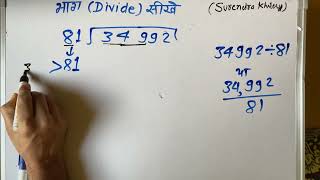 भाग (Divide) सीखे
(Surendra Khilery)
81 ) 34 992
>81
34992÷81
या
34,992
81